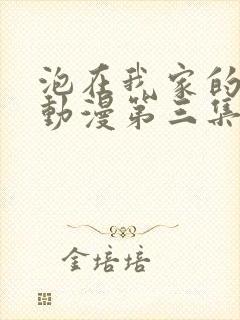 泡在我家的
動漫第三集
金培培